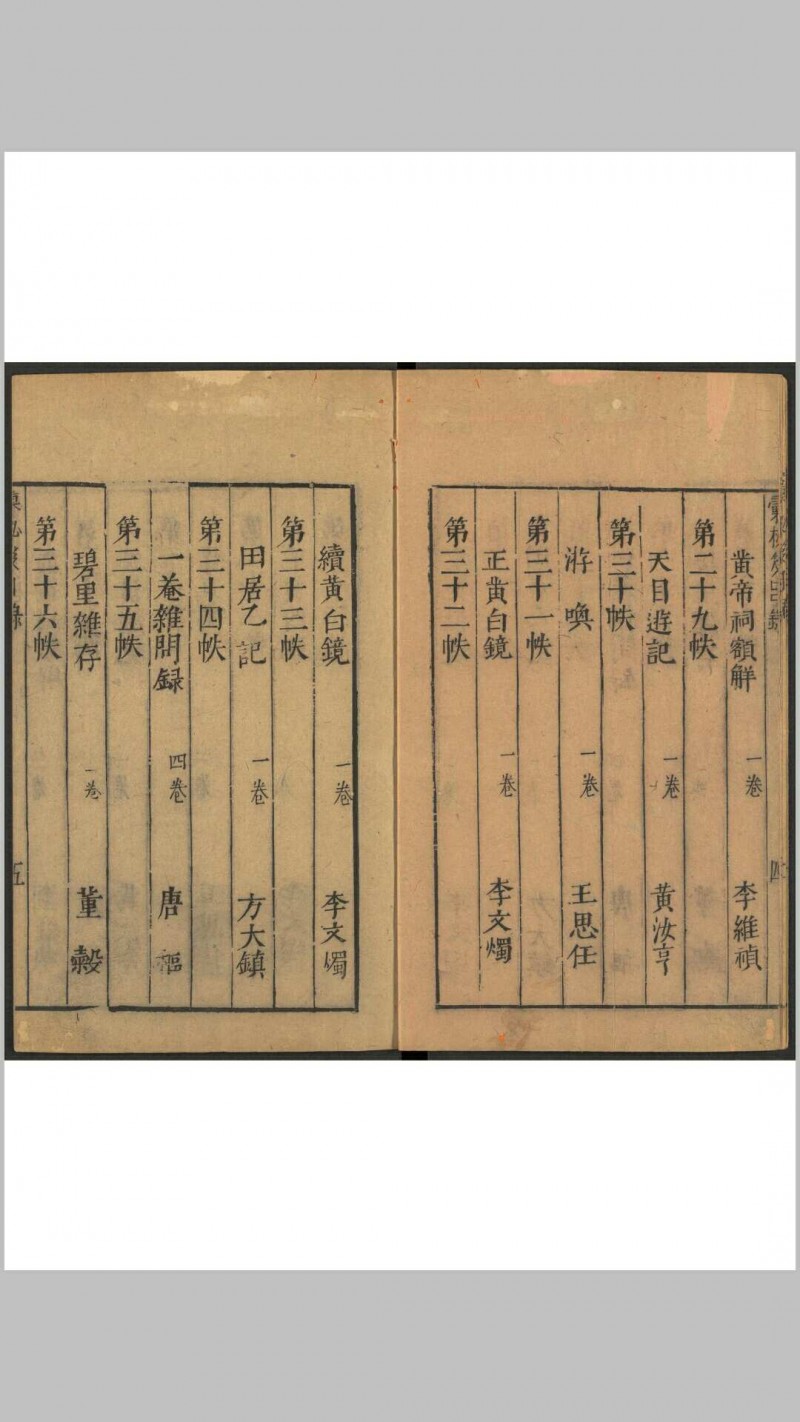 黃帝祠額解 一卷 李維楨
第二十九帙
天目遊記 一卷 黃汝亨
第三十帙
游喚 一卷 王思任
第三十一帙
正黃白鏡 一卷 李文燭
第三十二帙
四
續黃白鏡 一卷 李文燭
第三十三帙
田居乙記 一卷 方大鎮
第三十四帙
一菴雜問録 四卷 唐樞
第三十五帙
碧里雜存 一卷 董穀
第三十六帙
五